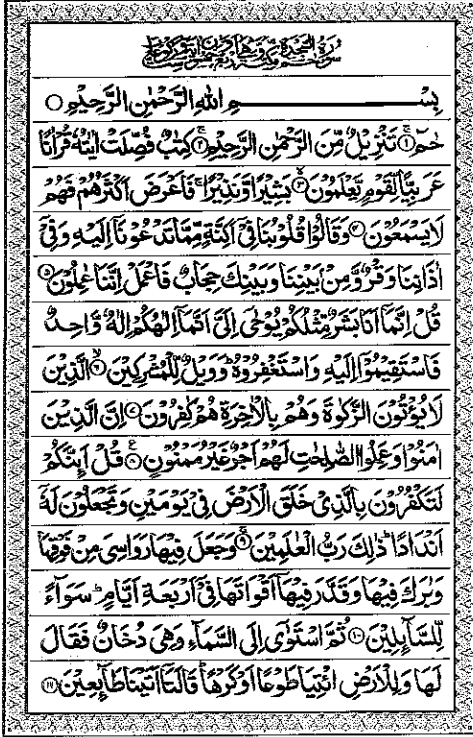 سُوْرَةُ السَّجْدَةِ
بِسْمِ اللهِ الرَّحْمٰنِ الرَّحِيْمِ ○
حٰمٓ ۚ﴿۱﴾ تَنْزِيْلٌ مِّنَ الرَّحْمٰنِ الرَّحِيْمِ ۚ﴿۲﴾ كِتٰبٌ فُصِّلَتْ اٰيٰتُهٗ قُرْاٰنًا
عَرَبِيًّا لِّقَوْمٍ يَّعْلَمُوْنَ ۙ﴿۳﴾ بَشِيْرًا وَّنَذِيْرًا ۚ فَاَعْرَضَ اَكْثَرُهُمْ فَهُمْ
لَا يَسْمَعُوْنَ ﴿۴﴾ وَقَالُوْا قُلُوْبُنَا فِيْٓ اَكِنَّةٍ مِّمَّا تَدْعُوْنَآ اِلَيْهِ وَفِيْٓ
اٰذَانِنَا وَقْرٌ وَّمِنْۢ بَيْنِنَا وَبَيْنِكَ حِجَابٌ فَاعْمَلْ اِنَّنَا عٰمِلُوْنَ ﴿۵﴾
قُلْ اِنَّمَآ اَنَا بَشَرٌ مِّثْلُكُمْ يُوْحٰٓى اِلَيَّ اَنَّمَآ اِلٰهُكُمْ اِلٰهٌ وَّاحِدٌ
فَاسْتَقِيْمُوْٓا اِلَيْهِ وَاسْتَغْفِرُوْهُ ؕ وَوَيْلٌ لِّلْمُشْرِكِيْنَ ۙ﴿۶﴾ الَّذِيْنَ
لَا يُؤْتُوْنَ الزَّكٰوةَ وَهُمْ بِالْاٰخِرَةِ هُمْ كٰفِرُوْنَ ﴿۷﴾ اِنَّ الَّذِيْنَ
اٰمَنُوْا وَعَمِلُوا الصّٰلِحٰتِ لَهُمْ اَجْرٌ غَيْرُ مَمْنُوْنٍ ﴿۸﴾ قُلْ اَئِنَّكُمْ
لَتَكْفُرُوْنَ بِالَّذِيْ خَلَقَ الْاَرْضَ فِيْ يَوْمَيْنِ وَتَجْعَلُوْنَ لَهٗٓ
اَنْدَادًا ؕ ذٰلِكَ رَبُّ الْعٰلَمِيْنَ ۚ﴿۹﴾ وَجَعَلَ فِيْهَا رَوَاسِيَ مِنْ فَوْقِهَا
وَبٰرَكَ فِيْهَا وَقَدَّرَ فِيْهَآ اَقْوَاتَهَا فِيْٓ اَرْبَعَةِ اَيَّامٍ ؕ سَوَآءً
لِّلسَّآئِلِيْنَ ﴿۱۰﴾ ثُمَّ اسْتَوٰٓى اِلَى السَّمَآءِ وَهِيَ دُخَانٌ فَقَالَ
لَهَا وَلِلْاَرْضِ ائْتِيَا طَوْعًا اَوْ كَرْهًا ؕ قَالَتَآ اَتَيْنَا طَآئِعِيْنَ ﴿۱۱﴾